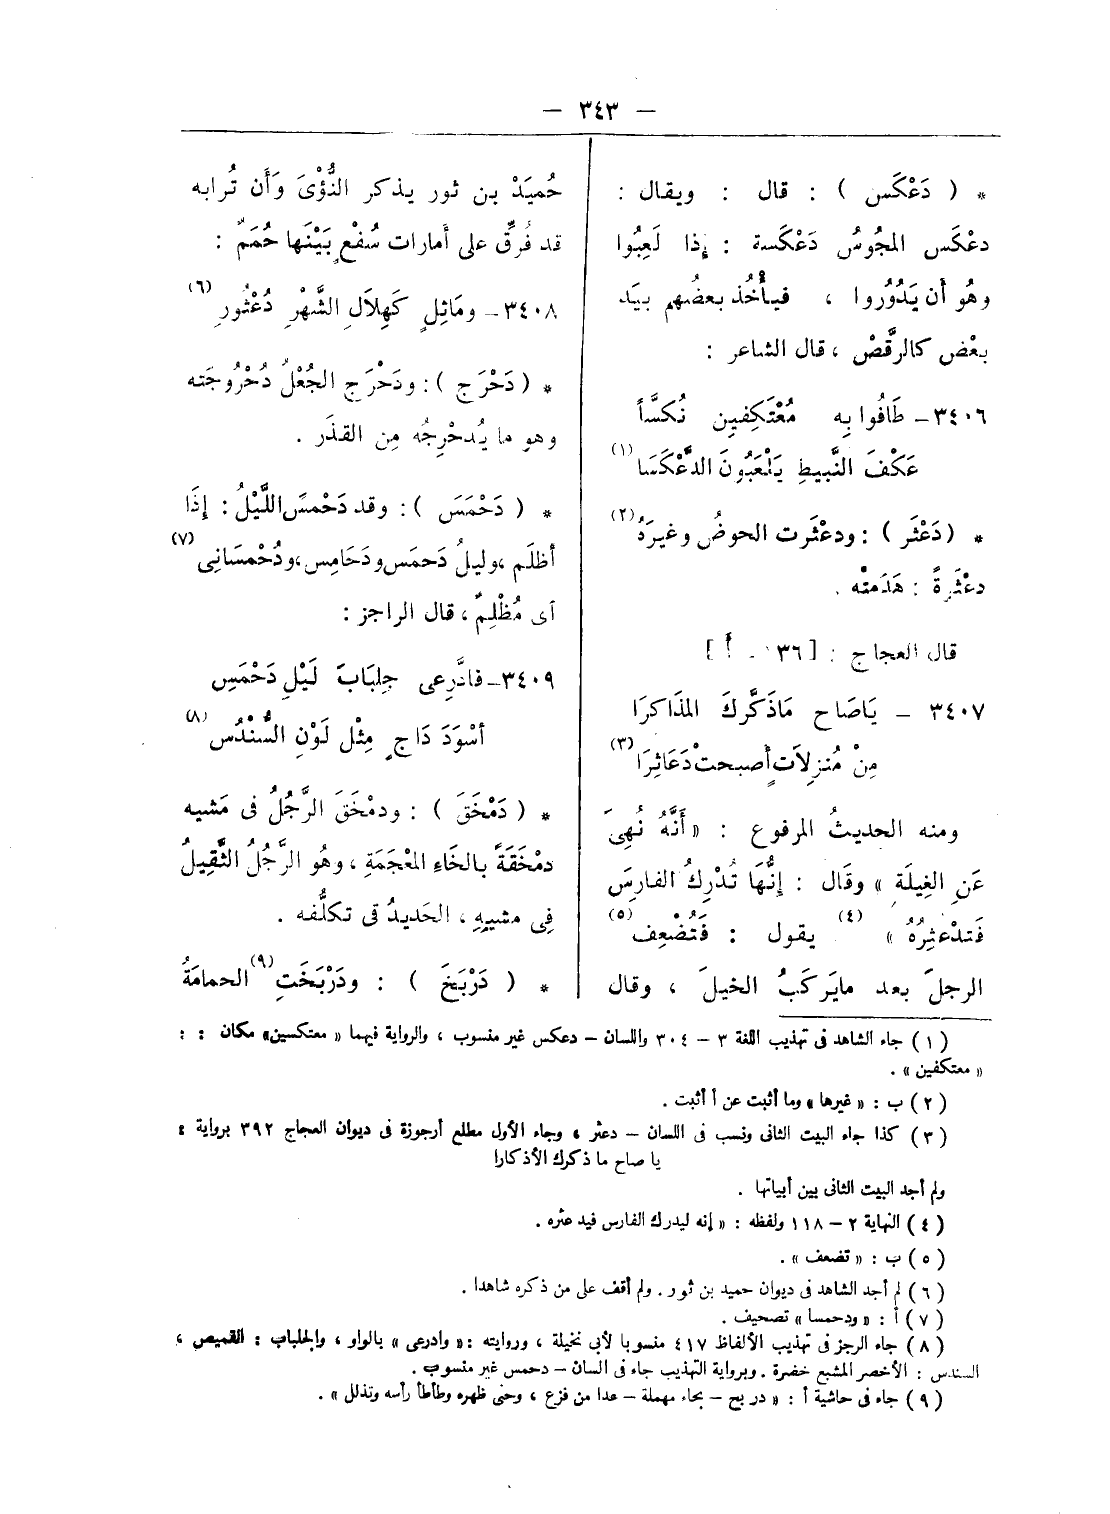 — ٣٤٣ —
* ( دَعْكَس ) : قال : ويقال :
دعْكَس المجُوسُ دَعْكَسة : إذا لَعِبُوا
وهُو أن يَدُوُروا ، فيأْخُذ بعضُهم بيَد
بعْض كالرقْصْ ، قال الشاعر :
٣٤٠٦ – طَافُوا بِه مُعْتَكِفِين نُكسَّاً
عَكْفَ النَّبيطِ يَلْعَبُونَ الدَّعْكَسَا (١)
* ( دَعْثَر ) : ودعْثَرت الحوضُ وغيرَهُ (٢)
دعْثَرةً : هَدَمتْه .
قال العجاج : [ ١٣٦ - أ ]
٣٤٠٧ – يَاصَاح مَاذَكَّركَ المَذَاكرَا
مِنْ مُنزِلَاتٍ أصبحتْ دَعَاثِرَا (٣)
ومنه الحديثُ المرفوع : « أَنَّهُ نُهِىَ
عَنِ الغِيلَةِ » وقَال : إنُّهَا تُدْرِكُ الفارِسَ
فَتدْعثِرُهُ » (٤) يقول : فَتُضْعِف (٥)
الرجلَ بعد مايَركَبُ الخيلَ ، وقال
حُميَدْ بن ثور يذكر النُّؤْىَ وَأَن تُرابه
قد فُرِّق على أَمارات سُفْعٍ بَيْنَها حُمَمٌ :
٣٤٠٨ – ومَاثِلٍ كَهِلاَلِ الشَّهْرِ دُعْثُورِ (٦)
* ( دَحْرَج ) : ودَحْرَج الجُعْلُ دُحْرُوجَته
وهو ما يُدحْرِجُه مِن القذَر .
* ( دَحْمَسَ ) : وقد دَحْمسَ اللَّيْلُ : إذَا
أظلَم ، وليلُ دَحمَس ودَحَامِس، ودُحْمسَانِى (٧)
أى مُظْلِمٌ ، قال الراجز :
٣٤٠٩ – فادَّرِعى جِلبَابَ لَيْلٍ دَحْمَسِ
أسْوَدَ دَاجٍ مِثْل لَوْنِ السُّنْدُسِ (٨)
* ( دَمْخَقَ ) : ودمْخَقَ الرَّجُلُ فى مَشيه
دمْخَقَةً بالخَاءِ المعْجَمَةِ ، وهُو الرَّجُلُ الثَّقِيلُ
فِى مشيِهِ ، الحَديدُ فى تكلُّفه .
* ( دَرْبَخَ ) : ودَرْبَخَتِ (٩) الحمامَةُ
( ١ ) جاء الشاهد فى تهذيب اللغة ٣ – ٣٠٤ واللسان – دعكس غير منسوب ، والرواية فيهما « معتكسين» مكان : :
« معتكفين » .
( ٢ ) ب : « غيرها » وما أثبت عن أ أثبت .
( ٣ ) كذا جاء البيت الثانى ونسب فى اللسان – دعثر ، وجاء الأول مطلع أرجوزة فى ديوان العجاج ٣٩٢ برواية :
يا صاح ما ذكرك الأذكارا
ولم أجد البيت الثانى بين أبياتها .
( ٤ ) النهاية ٢ – ١١٨ ولفظه : « إنه ليدرك الفارس فيد عثره .
( ٥ ) ب : « تضعف » .
( ٦ ) لم أجد الشاهد فى ديوان حميد بن ثور . ولم أقف على من ذكره شاهدا .
( ٧ ) أ : « ودحمسا » تصحيف .
( ٨ ) جاء الرجز فى تهذيب الألفاظ ٤١٧ منسوبا لأبى نخيلة ، وروايته : « وادرعى » بالواو ، والجلباب : القميص ،
السندس : الأخضر المشبع خضرة . وبرواية التهذيب جاء فى السان – دحمس غير منسوب .
( ٩ ) جاء فى حاشية أ : « در بح – بحاء مهملة – عدا من فزع ، وحنى ظهره وطأطأ رأسه وتذلل » .